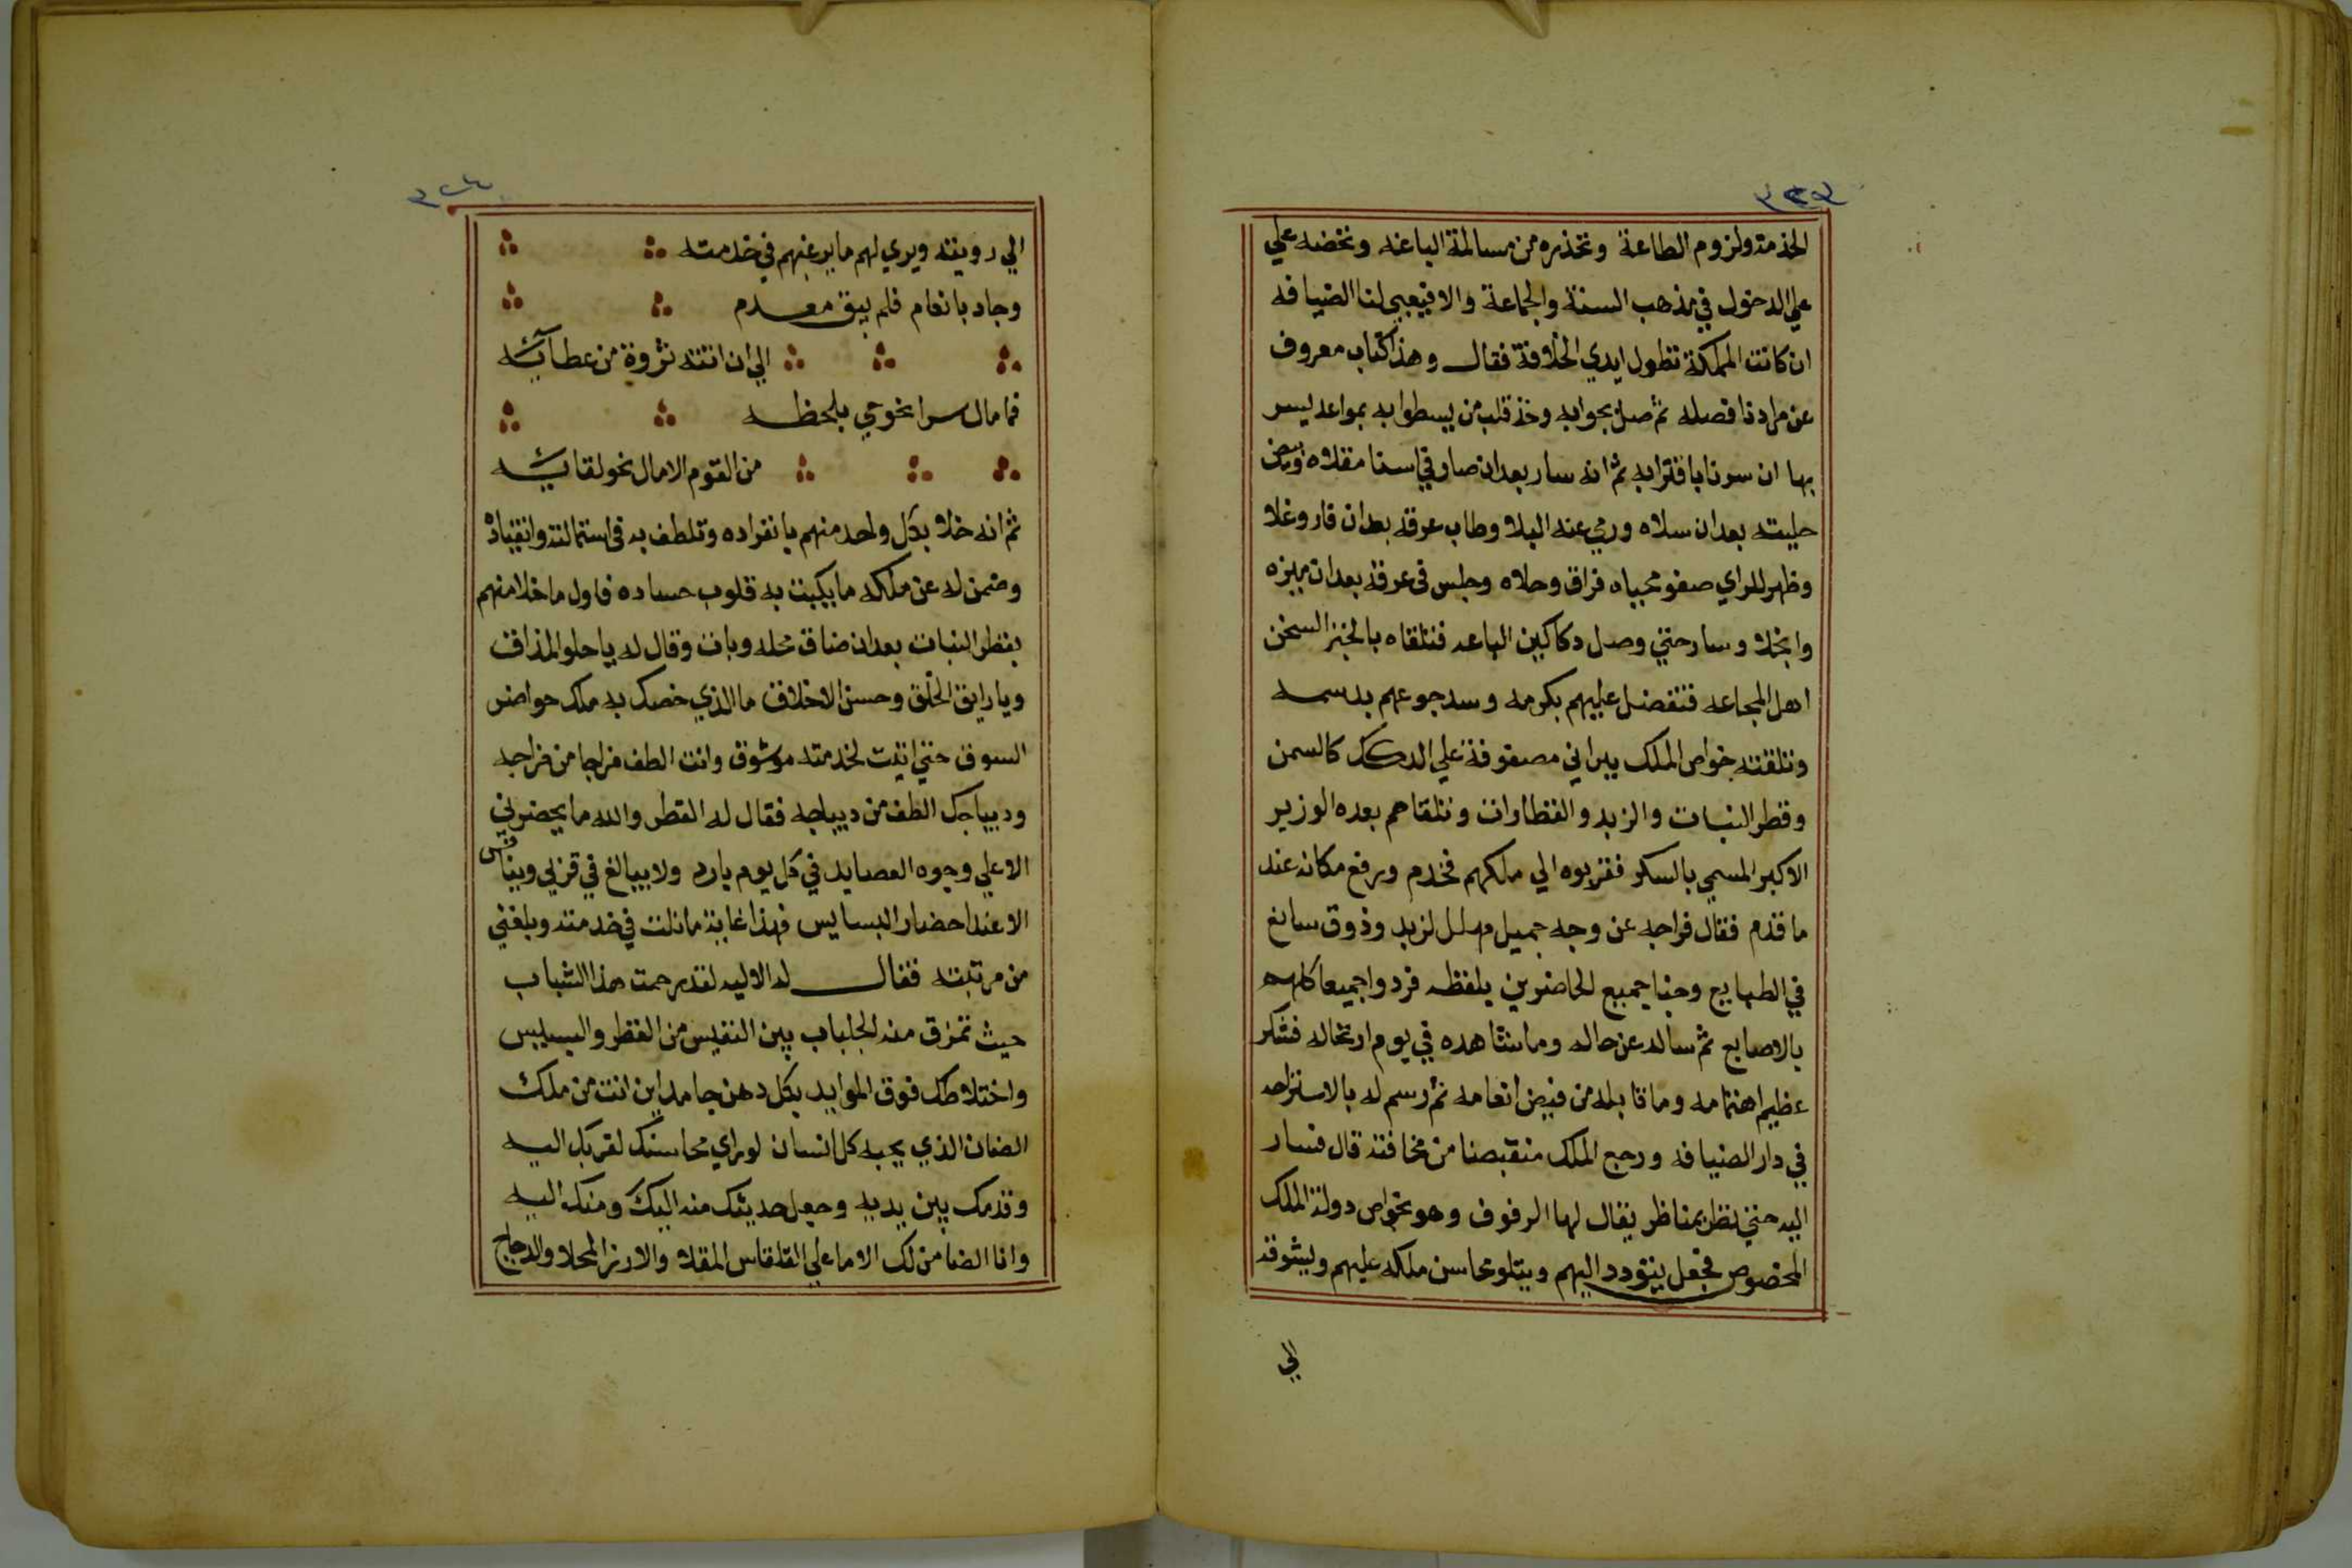 ٣٢٣
الخدمة ولزوم الطاعة وتحذره من مسالمة الباعه وتحضه علي
علي الدخول في مذهب السنة والجماعة والا فيعبي لنا الضيافه
ان كانت المملكة تطول ايدي الخلافة فقال وهذا كتاب معروف
عن مرادنا افصله ثم صل بجوابه وخذ قلب من يسطوا به بمواعد ليس
بها ان سرنا باقترابه ثم انه سار بعد ان صار في اسنا مقلاه
حليته بعد ان سلاه ورمي عنه البلا وطاب عرقه بعدان فار وغلا
وظهر للراي صفو محياه فراق وحلاه وجلس في عرقه بعدان ميزه
وانجلا وسار حتي وصل دكاكين الباعه فتلقاه بالخبز السخن
اهل المجاعه فتفضل عليهم بكرمه وسد جوعهم بدسمه
وتلقته خواص الملك ببراني مصفوفة علي الدكك كالسمن
وقطر النبات والزبد والقطارات وتلقاهم بعده الوزير
الاكبر المسمي بالسكر فقربوه الي ملكهم فخدم ورفع مكانه عند
ما قدم فقال فراجه عن وجه جميل مهلل لزبد وذوق سايغ
في الطبايع وحيا جميع الحاضرين بلفظه فردوا جميعا كلهم
بالاصابع ثم ساله عن حاله وما شاهده في يوم ارتحاله فشكر
عظيم اهتمامه وما قابله من فيض انعامه ثم رسم له بالاستراحه
في دار الضيافه ورجع الملك منقبضا من مخافته قال فسار
اليه حتي نظر بمناظر يقال لها الرفوف وهو بخواص دولة الملك
المخصوص فجعل يتودد اليهم ويتلو محاسن ملكه عليهم ويشوقه
الي
٣٢٤
الي رويته ويري لهم ما يرغبهم في خدمته
وجاد بانعام فلم يبق معدم
الي ان اتته ثروة من عطآئه
فما مال سرا نحوي بلحظه
من القوم الامال نحو لقائه
ثم انه خلا بكل واحد منهم بانفراده وتلطف به في استمالته وانقياده
وضمن له عن ملكه ما يكبت به قلوب حساده فاول ما خلا منهم
بقطر النبات بعدان ضاق محله وبات وقال له يا حلو المذاق
ويا رايق الخلق وحسن الاخلاق ما الذي خصك به ملك حواضر
السوق حتي اتيت لخدمته موشوق وانت الطف مزاجا من فراجه
وديباجك الطف من ديباجه فقال له القطر والله ما يحضرني
الا علي وجوه العصايد في كل يوم بارد ولا يبالغ في قربي وينافس
الا عند احضار البسايس فهذا غاية ما نلت في خدمته وبلغني
من مرتبته فقال له الاليه لقد رحمت هذا الشباب
حيث تمزق منه الجلباب بين النفيس من القطر والبسيس
واختلاطك فوق الموايد بكل دهن جامد اين انت من ملك
الضان الذي يحبه كل انسان لو راي محاسنك لقربك اليه
وقدمك بين يديه وجعل حديثك منه اليك ومنك اليه
وانا الضامن لك الاما علي القلقاس المقلا والارز المحلا والدجاج